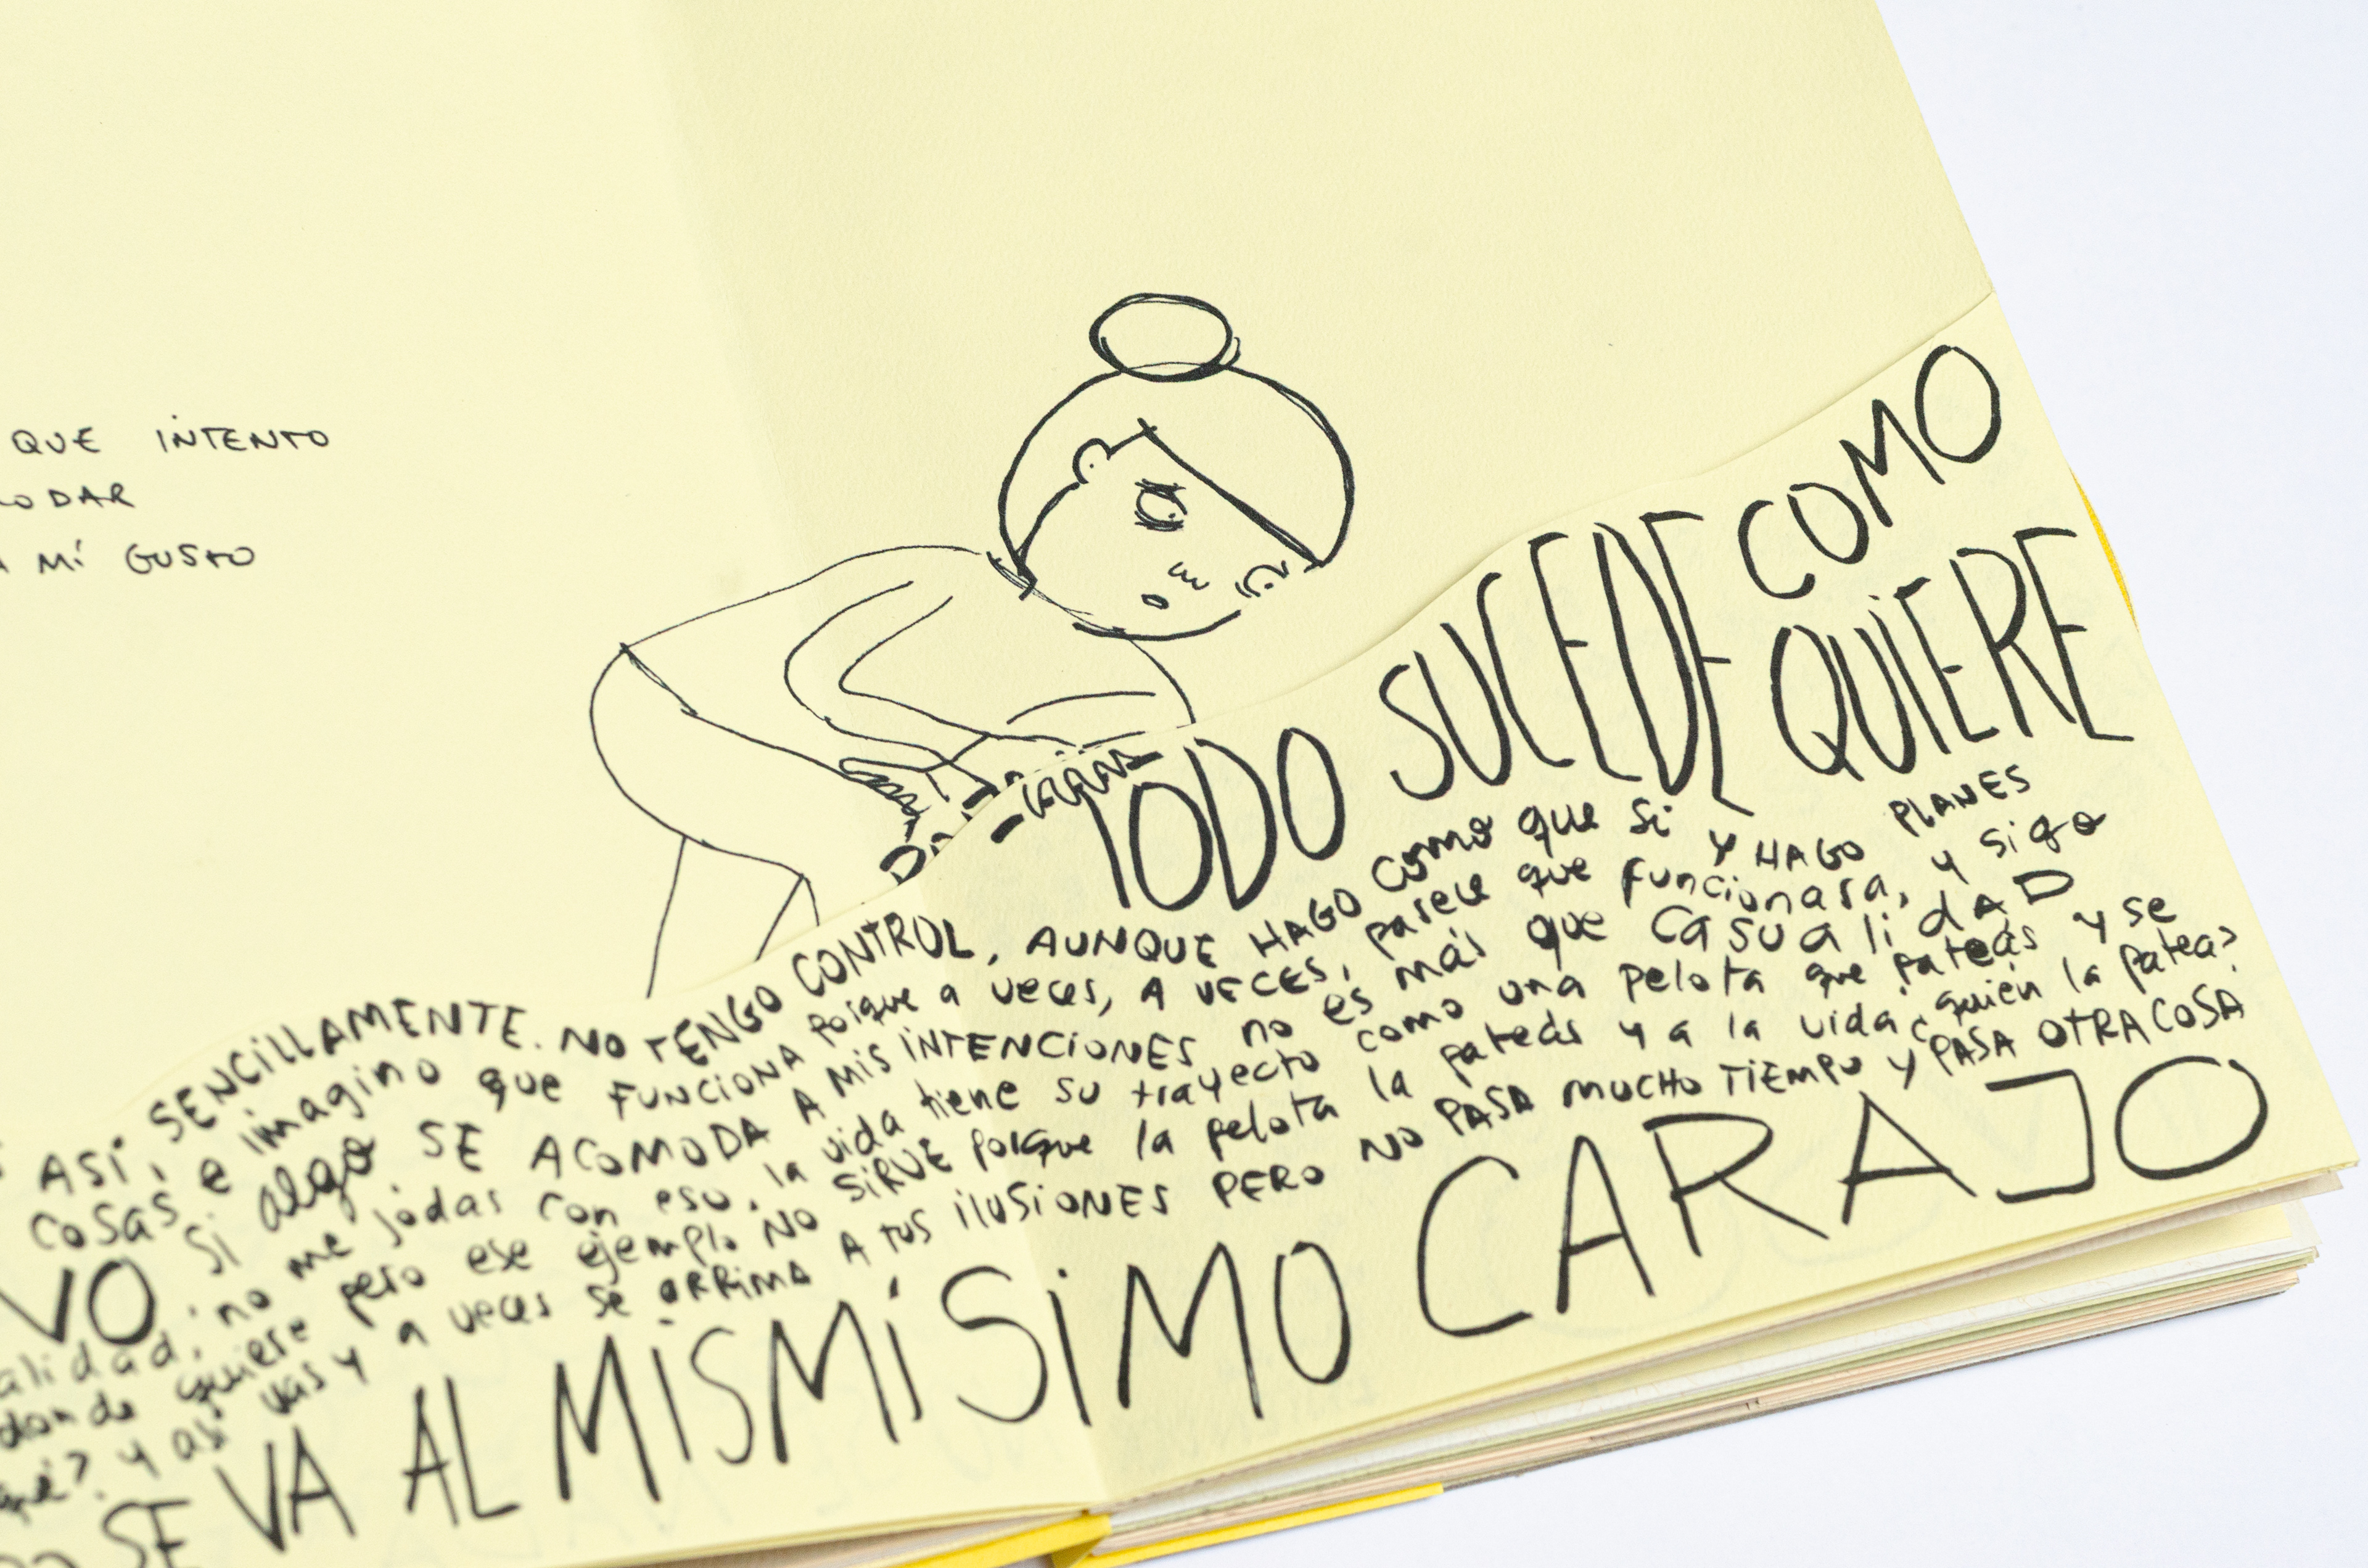 QUE INTENTO
MÍ GUSTO
TODO SUCEDE COMO
QUIERE
ASÍ, SENCILLAMENTE. NO TENGO CONTROL, AUNQUE HAGO como que sí y HAGO PLANES
cosas e imagino que FUNCIONA porque a veces, A VECES, parece que funcionara, y sigo
VO si algo SE ACOMODA A MIS INTENCIONES no es más que casualidAD
no me jodas con eso. la vida tiene su trayecto como una pelota que pateás y se
donde quiere pero ese ejemplo NO SIRVE porque la pelota la pateás y a la vida ¿quién la patea?
y así vas y a veces se ARRIMA A TUS ILUSIONES PERO NO PASA MUCHO TIEMPO Y PASA OTRA COSA
SE VA AL MISMÍSIMO CARAJO